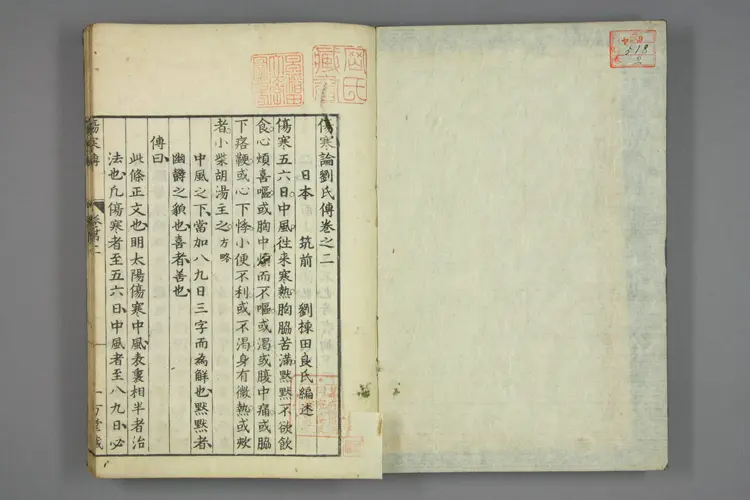 傷寒論劉氏傳卷之二
日本 筑前 劉棟田良氏編述
傷寒五六日中風徃来寒熱胸脇苦滿黙黙不欲飲
食心煩喜嘔或胸中煩而不嘔或渴或腹中痛或脇
下痞鞕或心下悸小便不利或不渴身有微熱或欬
者小柴胡湯主之方略
中風之下當加八九日三字而為解也黙黙者
幽欝之貌也喜者善也
傳曰
此條正文也明太陽傷寒中風表裏相半者治
法也凢傷寒者至五六日中風者至八九日必
傷寒傳